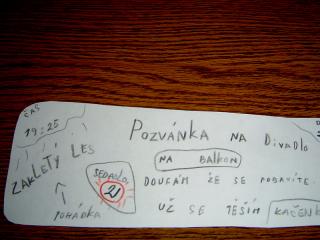 ČAS
19:25
POZVÁNKA NA DIVADLO
NA BALKON
ZAKLETÝ LES
SEDADLO
2
DOUFÁM ŽE SE POBAVÍTE.
UŽ SE TĚŠÍM
POHÁDKA